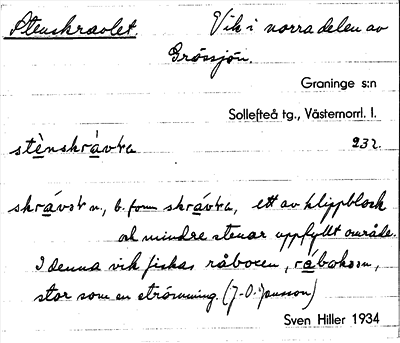 Stenskravlet. Vik i norra delen av
Grössjön.
Graninge s:n
Sollefteå tg., Västernorrl. l.
stènskrávta 232.
skrávst n, b. form skrávta, ett av klippblock
och mindre stenar uppfyllt område.
I denna vik fiskas råbocen, rábokson,
stor som en strömming. (J-O. Jonsson)
Sven Hiller 1934